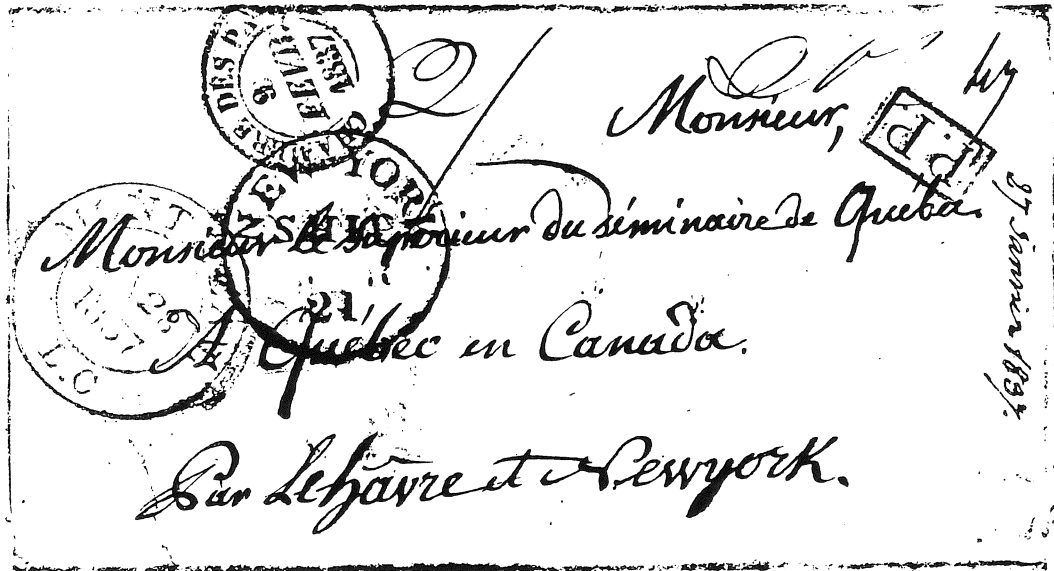 Monsieur,
Monsieur le Supérieur du séminaire de Québec.
A Québec en Canada.
Par Lehâvre et Newyork.
27 Janvier 1837.
P.P.
9
FEVR
1837
NEW YORK
21
28
1837